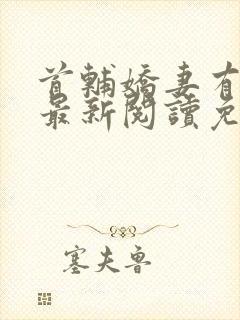 首輔嬌妻有
最新閱讀免
塞夫魯